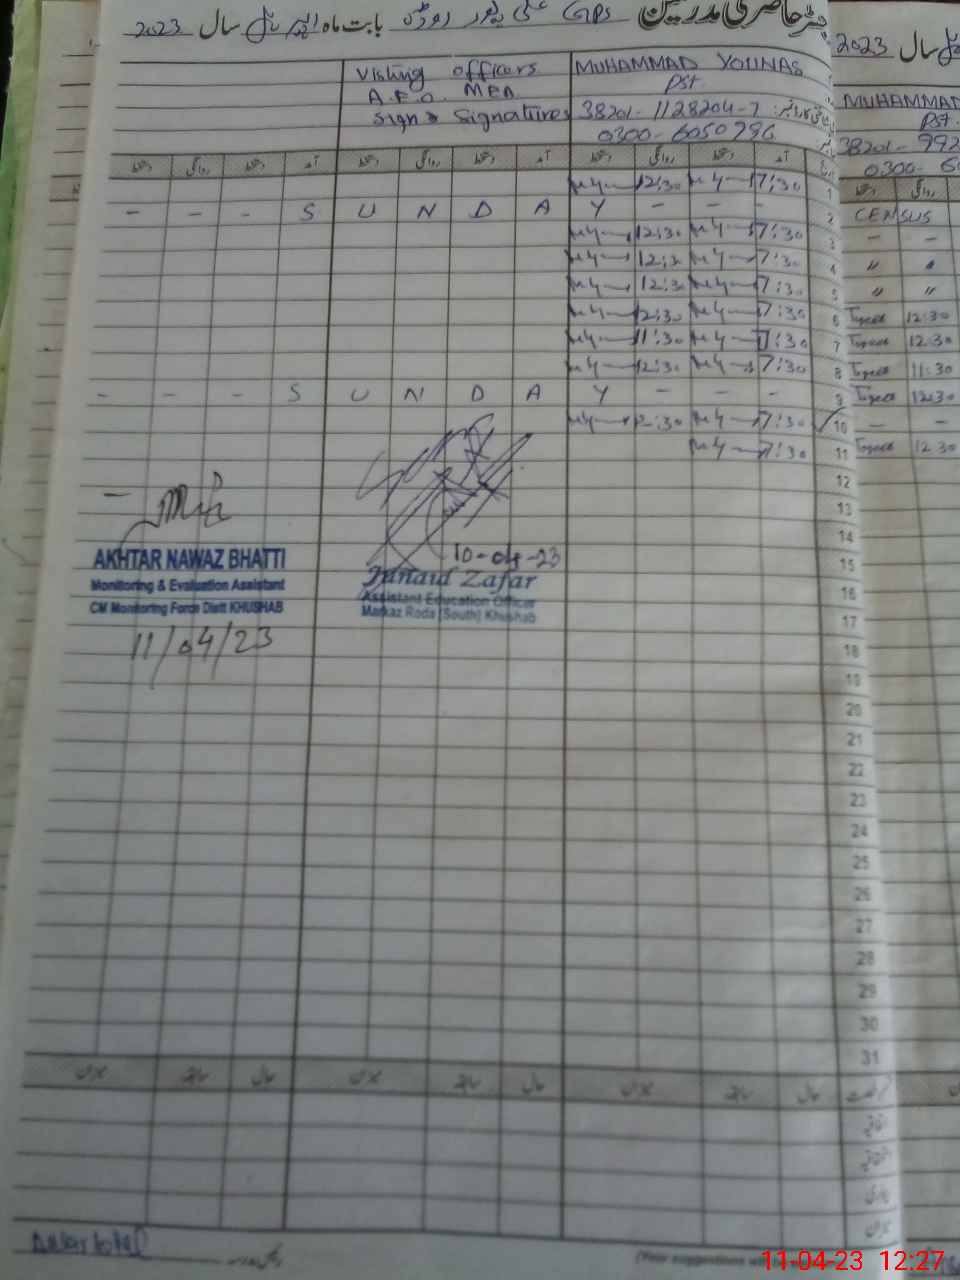 رجسٹر حاضری مدرسین GPS علی پور روڈہ بابت ماہ اپریل سال 2023
سال 2023
Visting officers MUHAMMAD YOUNAS
A.E.O. MEA PST
Sign & Signatures 38201-1128204-7
0300-6050796
MUHAMMAD
PST
38201- 992
0300- 60
آمد دستخط روانگی دستخط آمد دستخط روانگی دستخط آمد دستخط روانگی دستخط
دستخط روانگی
1 7:30 12:30
2 - - - S U N D A Y - - -
CENSUS
3 7:30 12:30 - -
4 7:30 12:3 " "
5 7:30 12:30 " "
6 7:30 12:30 12:30
7 7:30 11:30 12:30
8 7:30 12:30 11:30
9 - - - S U N D A Y - - - 12:30
10 7:30 12:30 - -
11 7:30 12:30
12
13
14
15
16
17
18
19
20
21
22
23
24
25
26
27
28
29
30
31
10-04-23
Junaid Zafar
Assistant Education Officer
Markaz Roda (South) Khushab
AKHTAR NAWAZ BHATTI
Monitoring & Evaluation Assistant
CM Monitoring Force Distt KHUSHAB
11/04/23
حال سابقہ میزان حال سابقہ میزان حال سابقہ میزان
اتفاقیہ
بیماری
میزان
(Your suggestions
11-04-23 12:27